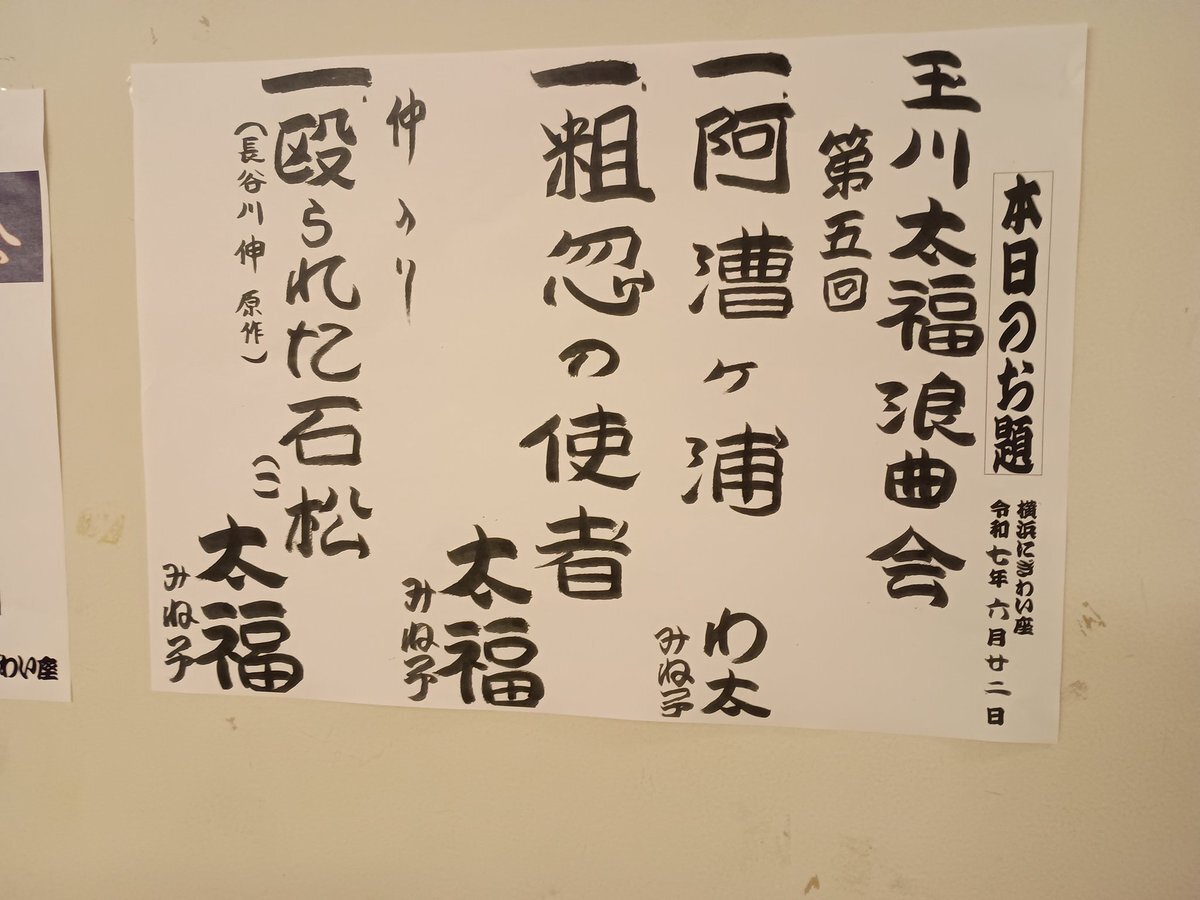 本日のお題
横浜にぎわい座
令和七年六月廿二日
玉川太福浪曲会
第五回
一、阿漕ヶ浦
わ太
みね子
一、粗忽の使者
太福
みね子
仲入り
一、殴られた石松
(二)
(長谷川伸 原作)
太福
みね子
わい座